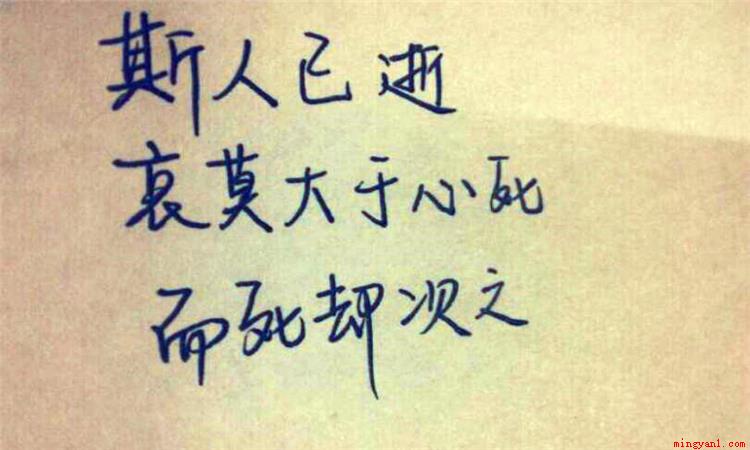 斯人已逝
哀莫大于心死
而死却次之
mingyanl.com